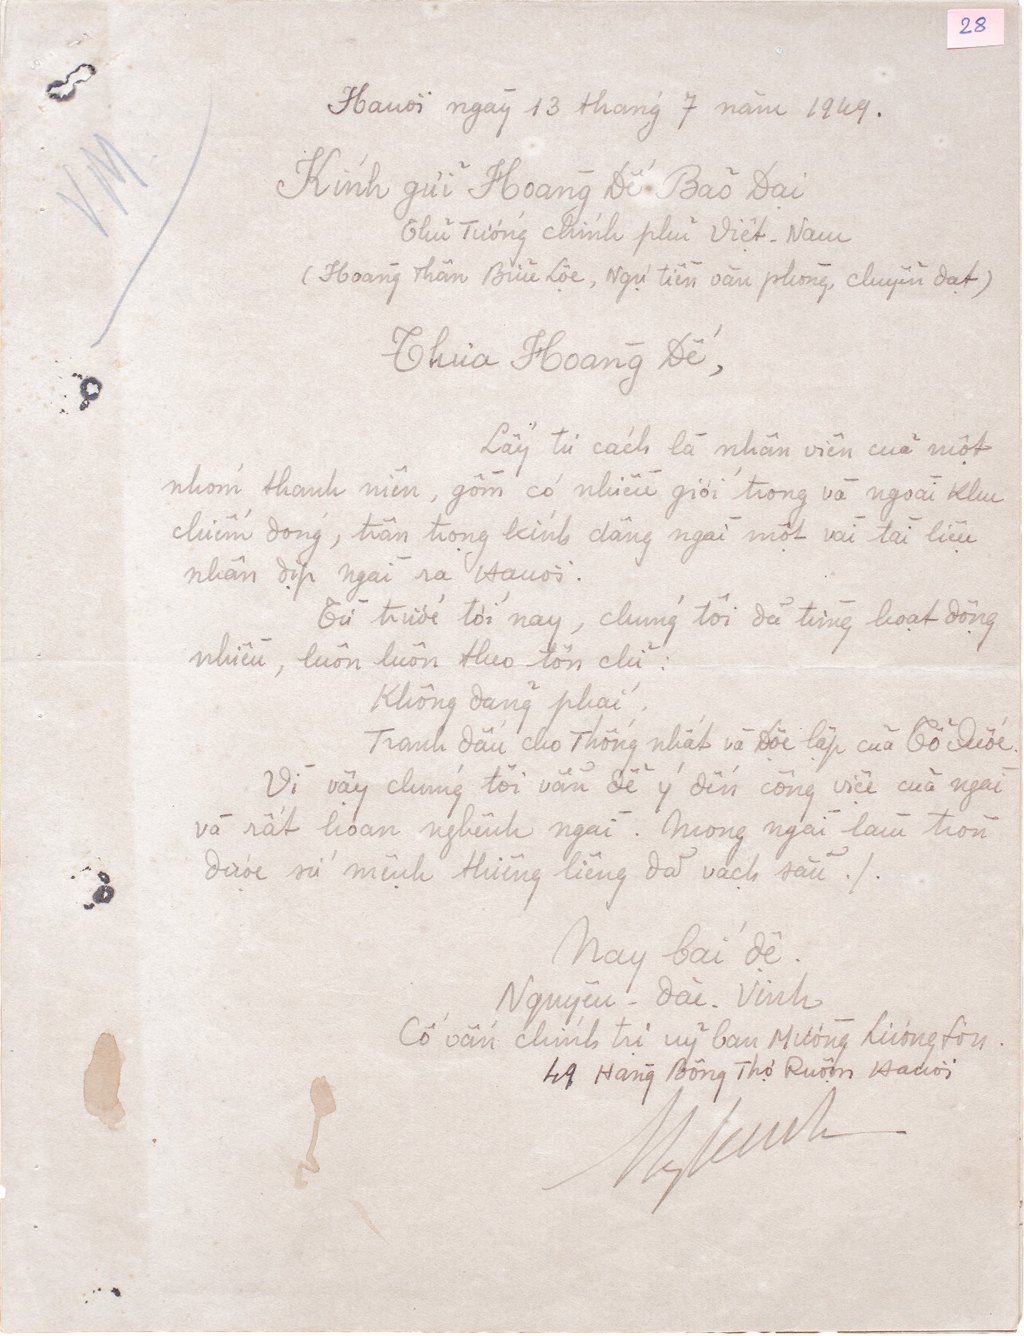 28
VM
Hanoi ngày 13 tháng 7 năm 1949.
Kính gửi Hoàng Đế Bảo Đại
Thủ Tướng chính phủ Việt-Nam
(Hoàng Thân Bửu Lộc, Ngự tiền văn phòng, chuyển đạt)
Thưa Hoàng Đế,
Lấy tư cách là nhân viên của một
nhóm thanh niên, gồm có nhiều giới trong và ngoài khu
chiếm đóng, trân trọng kính dâng ngài một vài tài liệu
nhân dịp ngài ra Hanoi.
Từ trước tới nay, chúng tôi đã từng hoạt động
nhiều, luôn luôn theo tôn chỉ:
Không đảng phái.
Tranh đấu cho Thống nhất và Độc lập của Tổ Quốc.
Vì vậy chúng tôi vẫn để ý đến công việc của ngài
và rất hoan nghênh ngài. Mong ngài làm tròn
được sứ mệnh thiêng liêng đã vạch sẵn ./.
Nay bái đệ.
Nguyễn-Đắc-Vinh
Cố vấn chính trị uỷ ban Mường Lương Sơn.
49 Hàng Bông Thợ Ruộm Hanoi